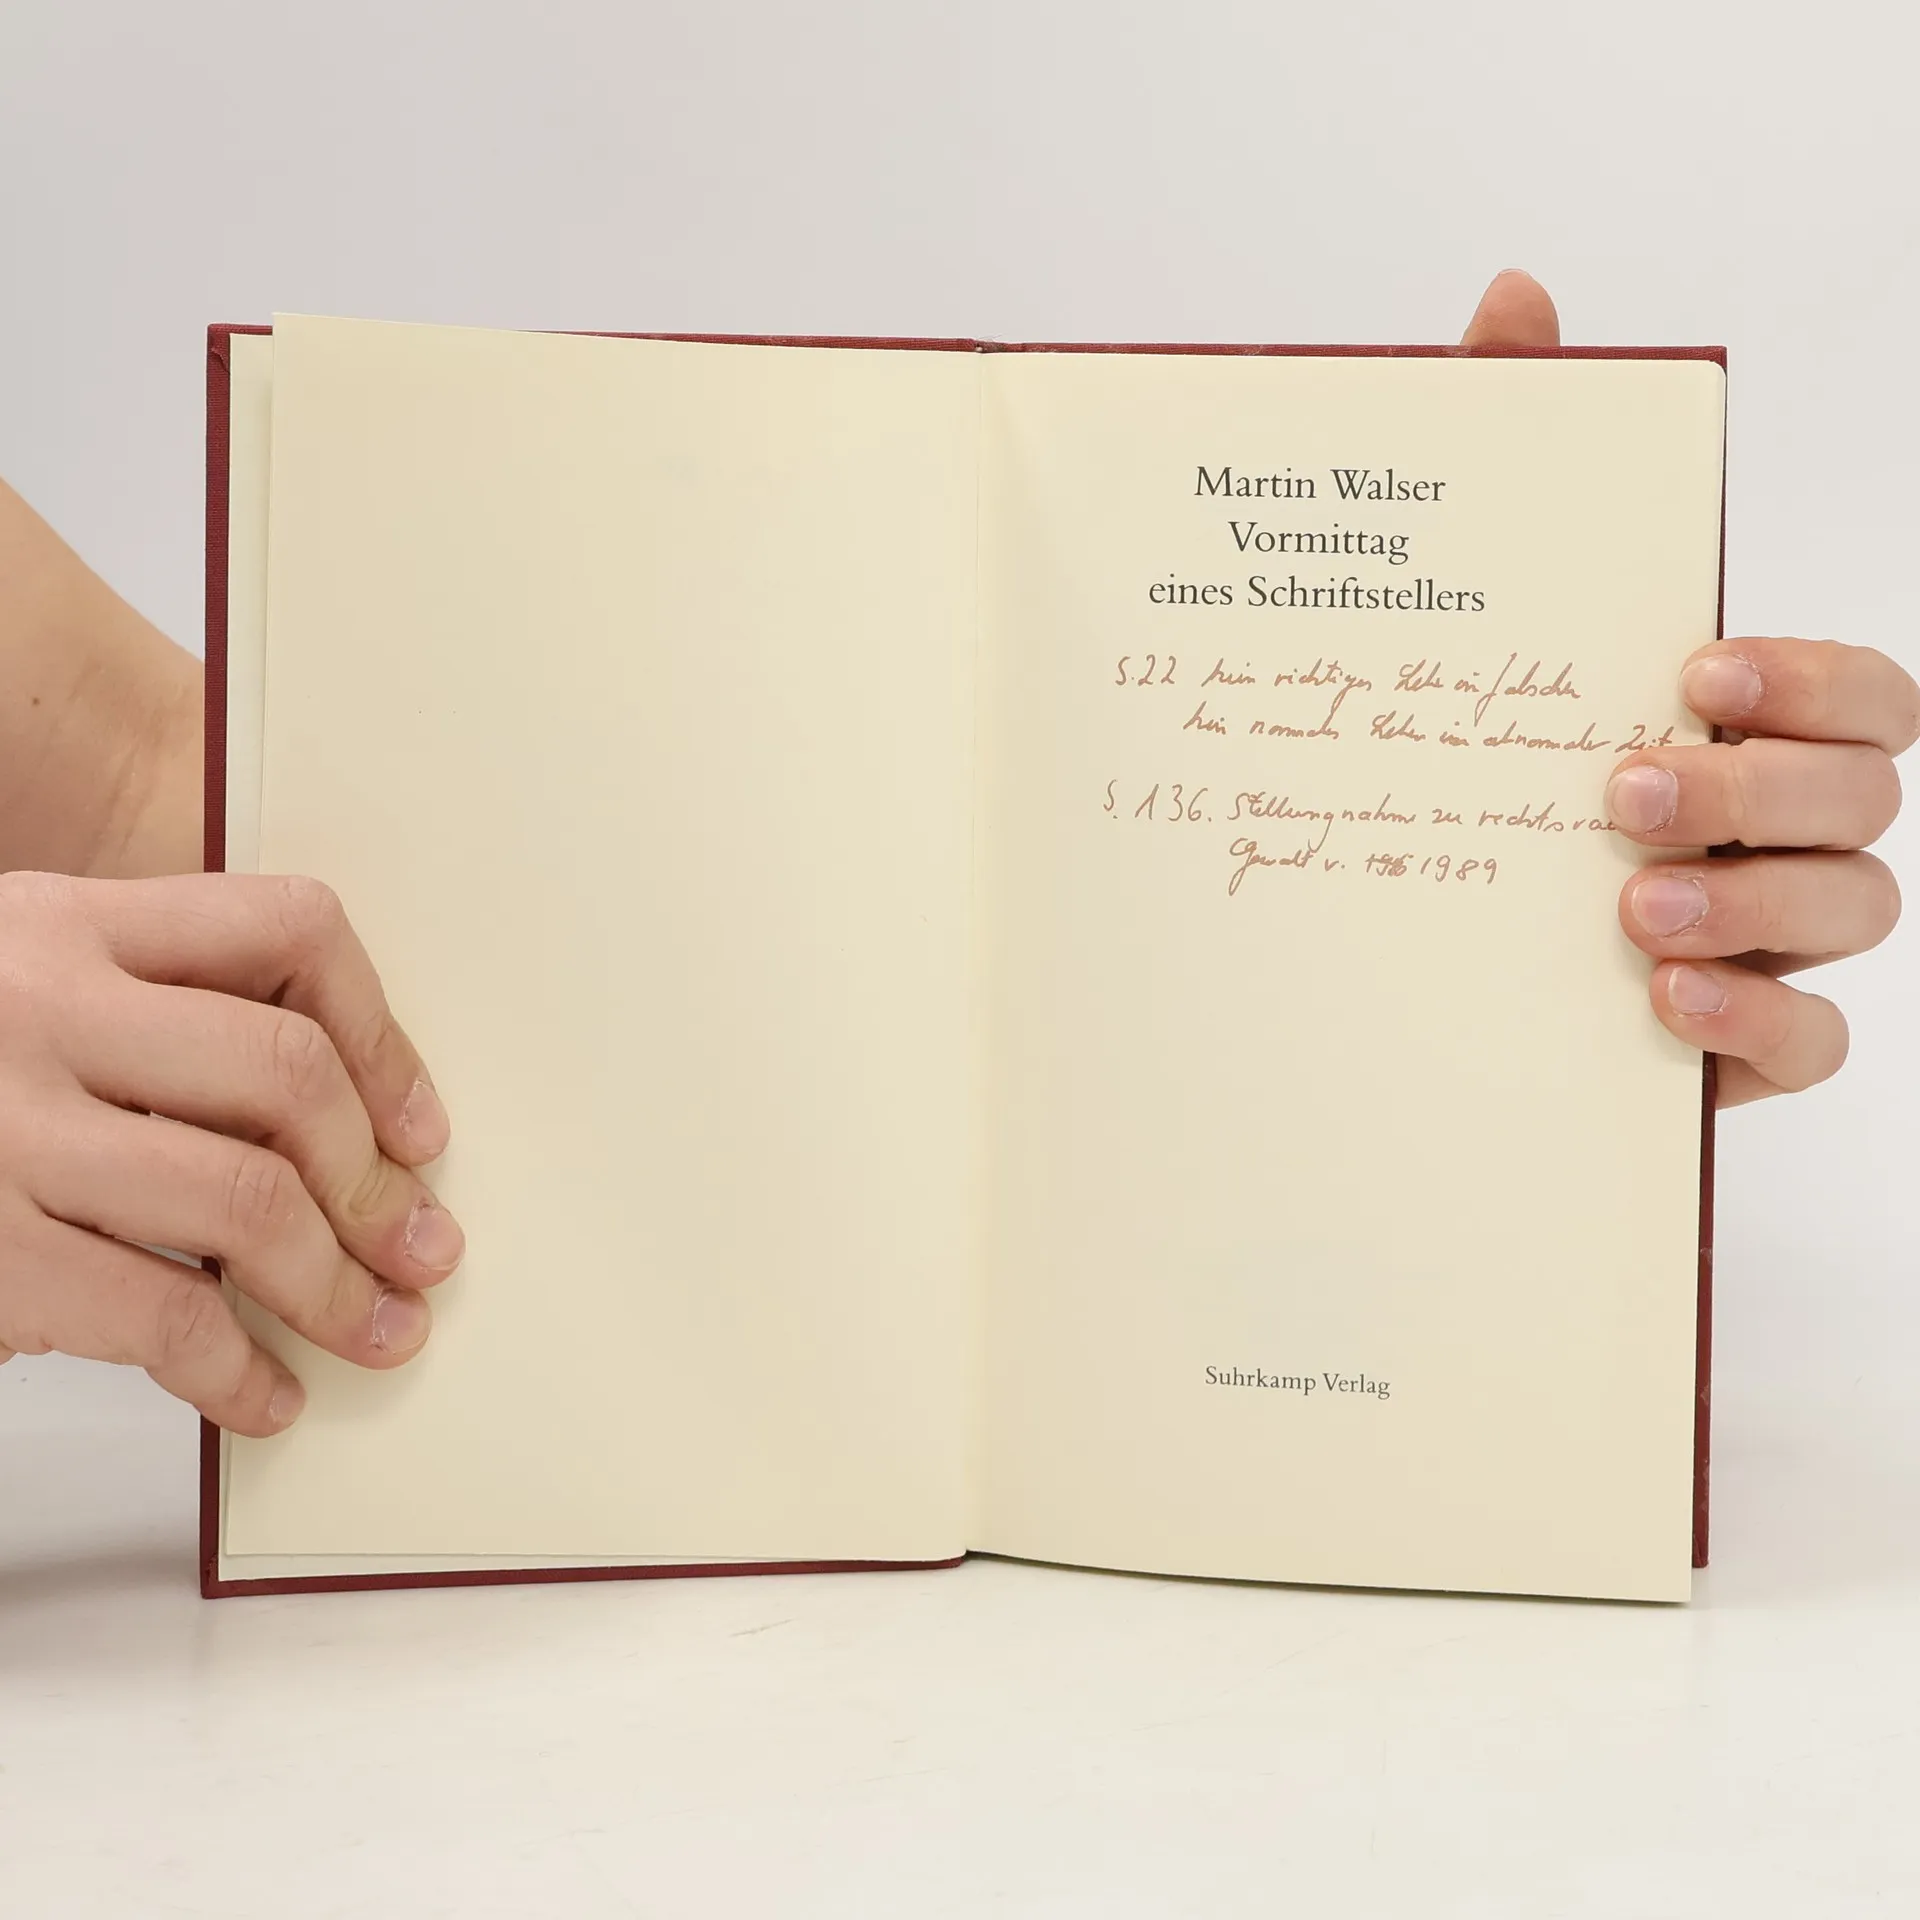 Martin Walser
Vormittag
eines Schriftstellers
S. 22 kein richtiges Leben im falschen
kein normales Leben in abnormaler Zeit
S. 136. Stellungnahme zu rechts
Gewalt v. 1989
Suhrkamp Verlag